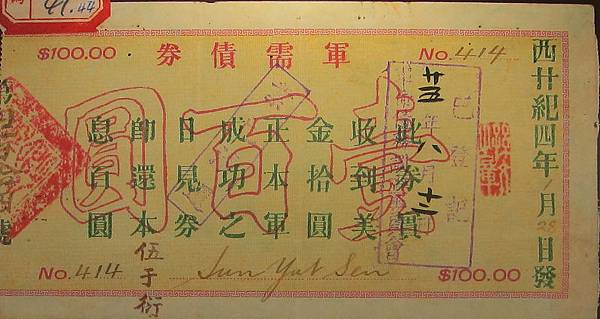 41.44
$100.00
軍需債券
No. 414
西廿紀四年1月28日發
壹百圓
此券實
收到美
金拾圓
正本軍
成功之
日見券
即還本
息百圓
已登記
廿五年八月十二
No. 414
伍于衍
Sun Yat Sen
$100.00